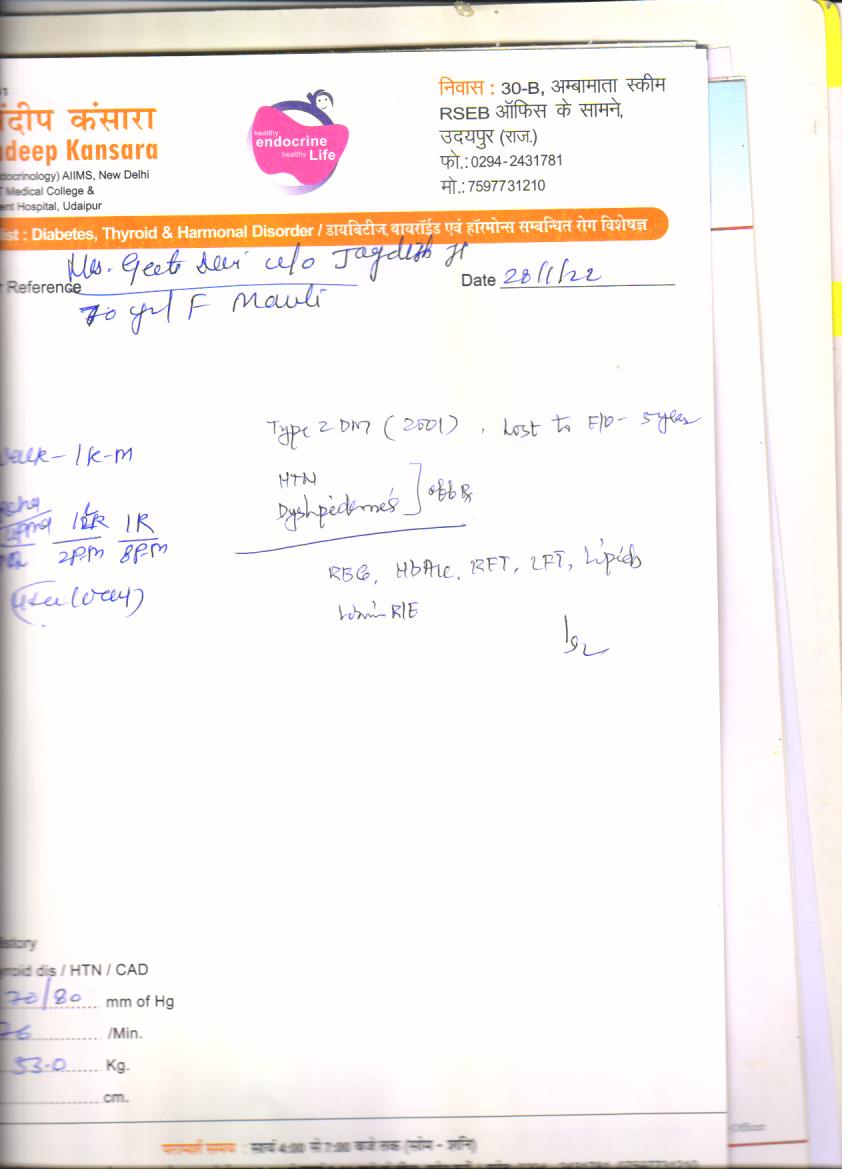 ंदीप कंसारा
deep Kansara
docrinology) AIIMS, New Delhi
Medical College &
ent Hospital, Udaipur
healthy
endocrine
healthy Life
निवास : 30-B, अम्बामाता स्कीम
RSEB ऑफिस के सामने,
उदयपुर (राज.)
फो.: 0294-2431781
मो.: 7597731210
ist : Diabetes, Thyroid & Harmonal Disorder / डायबिटीज, थायरॉईड एवं हॉरमोन्स सम्बन्धित रोग विशेषज्ञ
Mrs. Geeta Devi w/o Jagdish Ji
r Reference
Date 28/1/22
70 yr/ F Mavli
Type 2 DM (2001), Lost to F/O - 5 years
walk - 1k-m
HTN
Dyslipidemia ] off Rx
1R 1R
2P.M 8P.M
RBG, HbA1c, RFT, LFT, Lipids
Urine R/E
istory
yroid dis / HTN / CAD
70/80 mm of Hg
76 /Min.
53.0 Kg.
cm.
Officer
परामर्श समय : सायं 4:00 से 7:00 बजे तक (सोम - शनि)